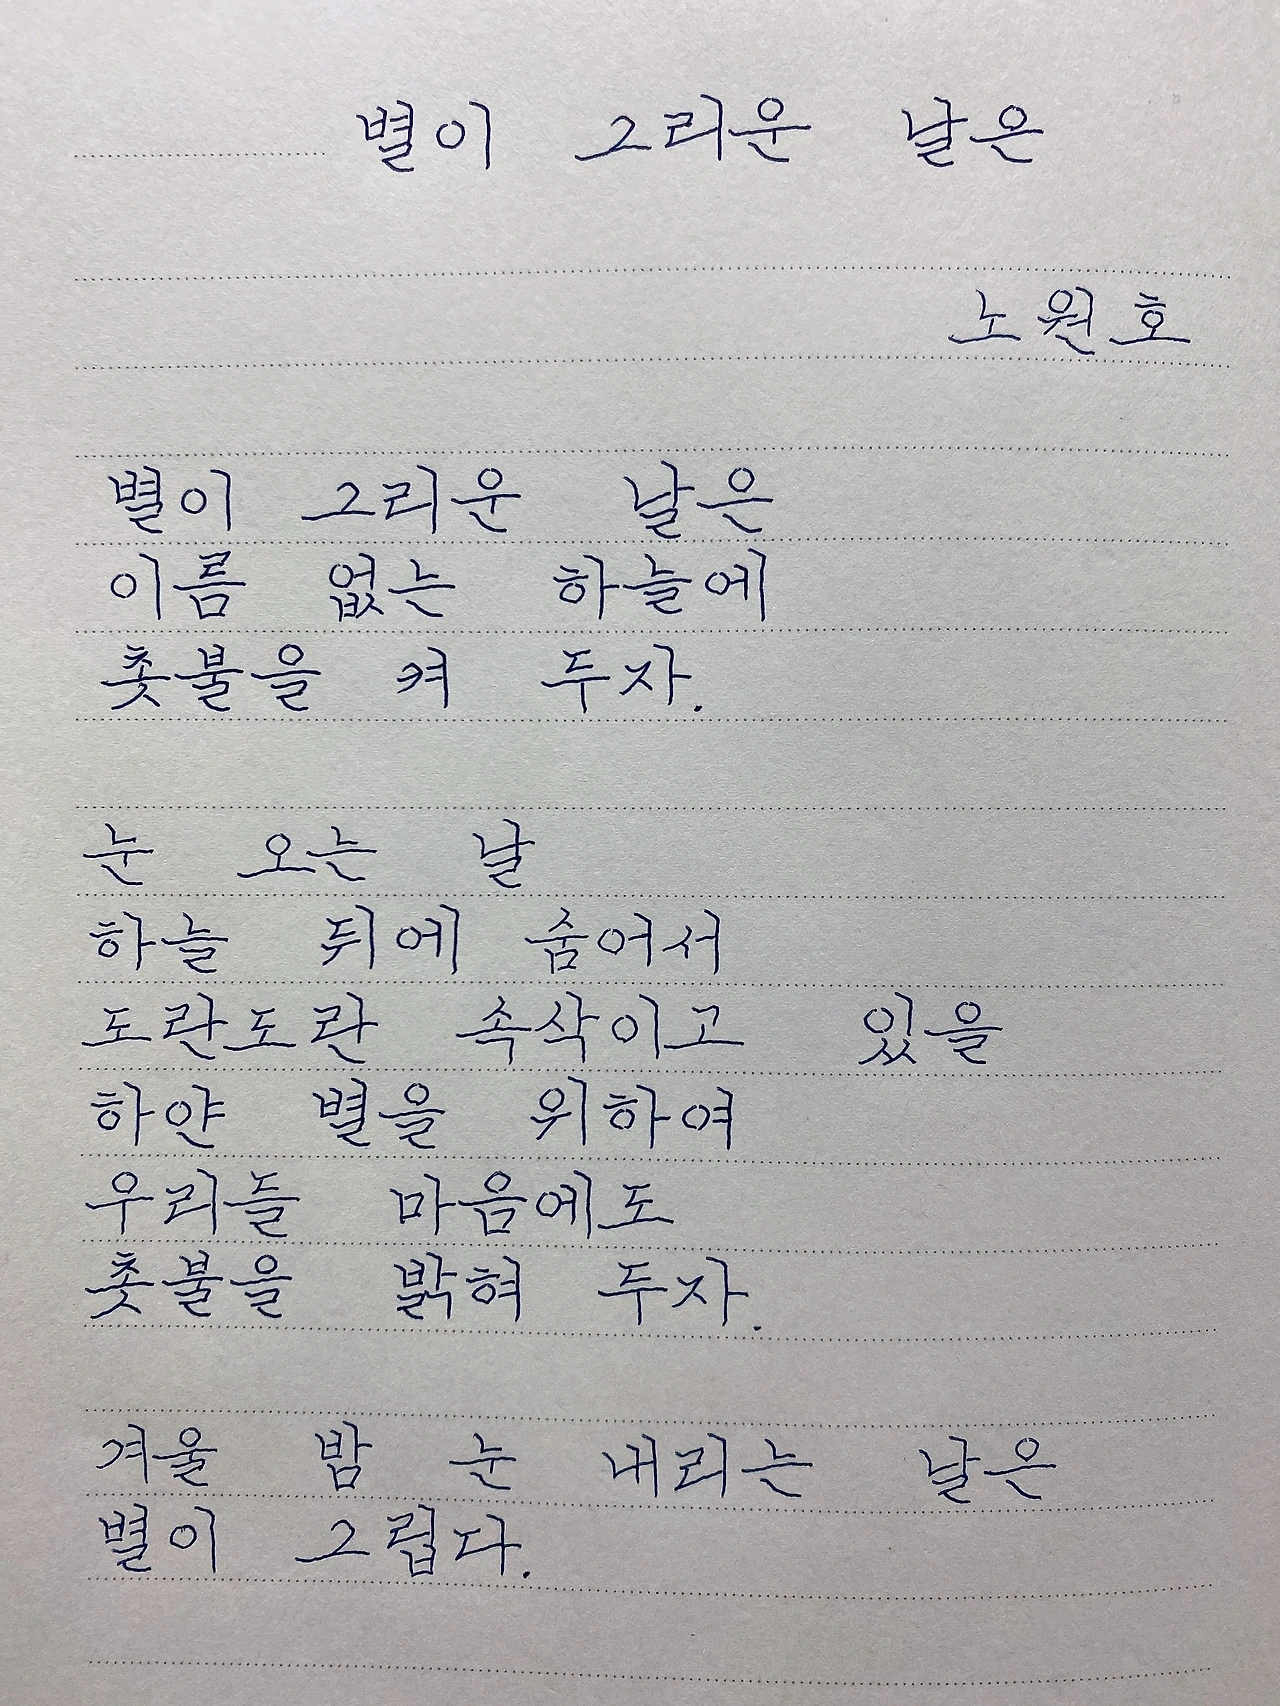 별이 그리운 날은
노원호
별이 그리운 날은
이름 없는 하늘에
촛불을 켜 두자.
눈 오는 날
하늘 뒤에 숨어서
도란도란 속삭이고 있을
하얀 별을 위하여
우리들 마음에도
촛불을 밝혀 두자.
겨울 밤 눈 내리는 날은
별이 그립다.